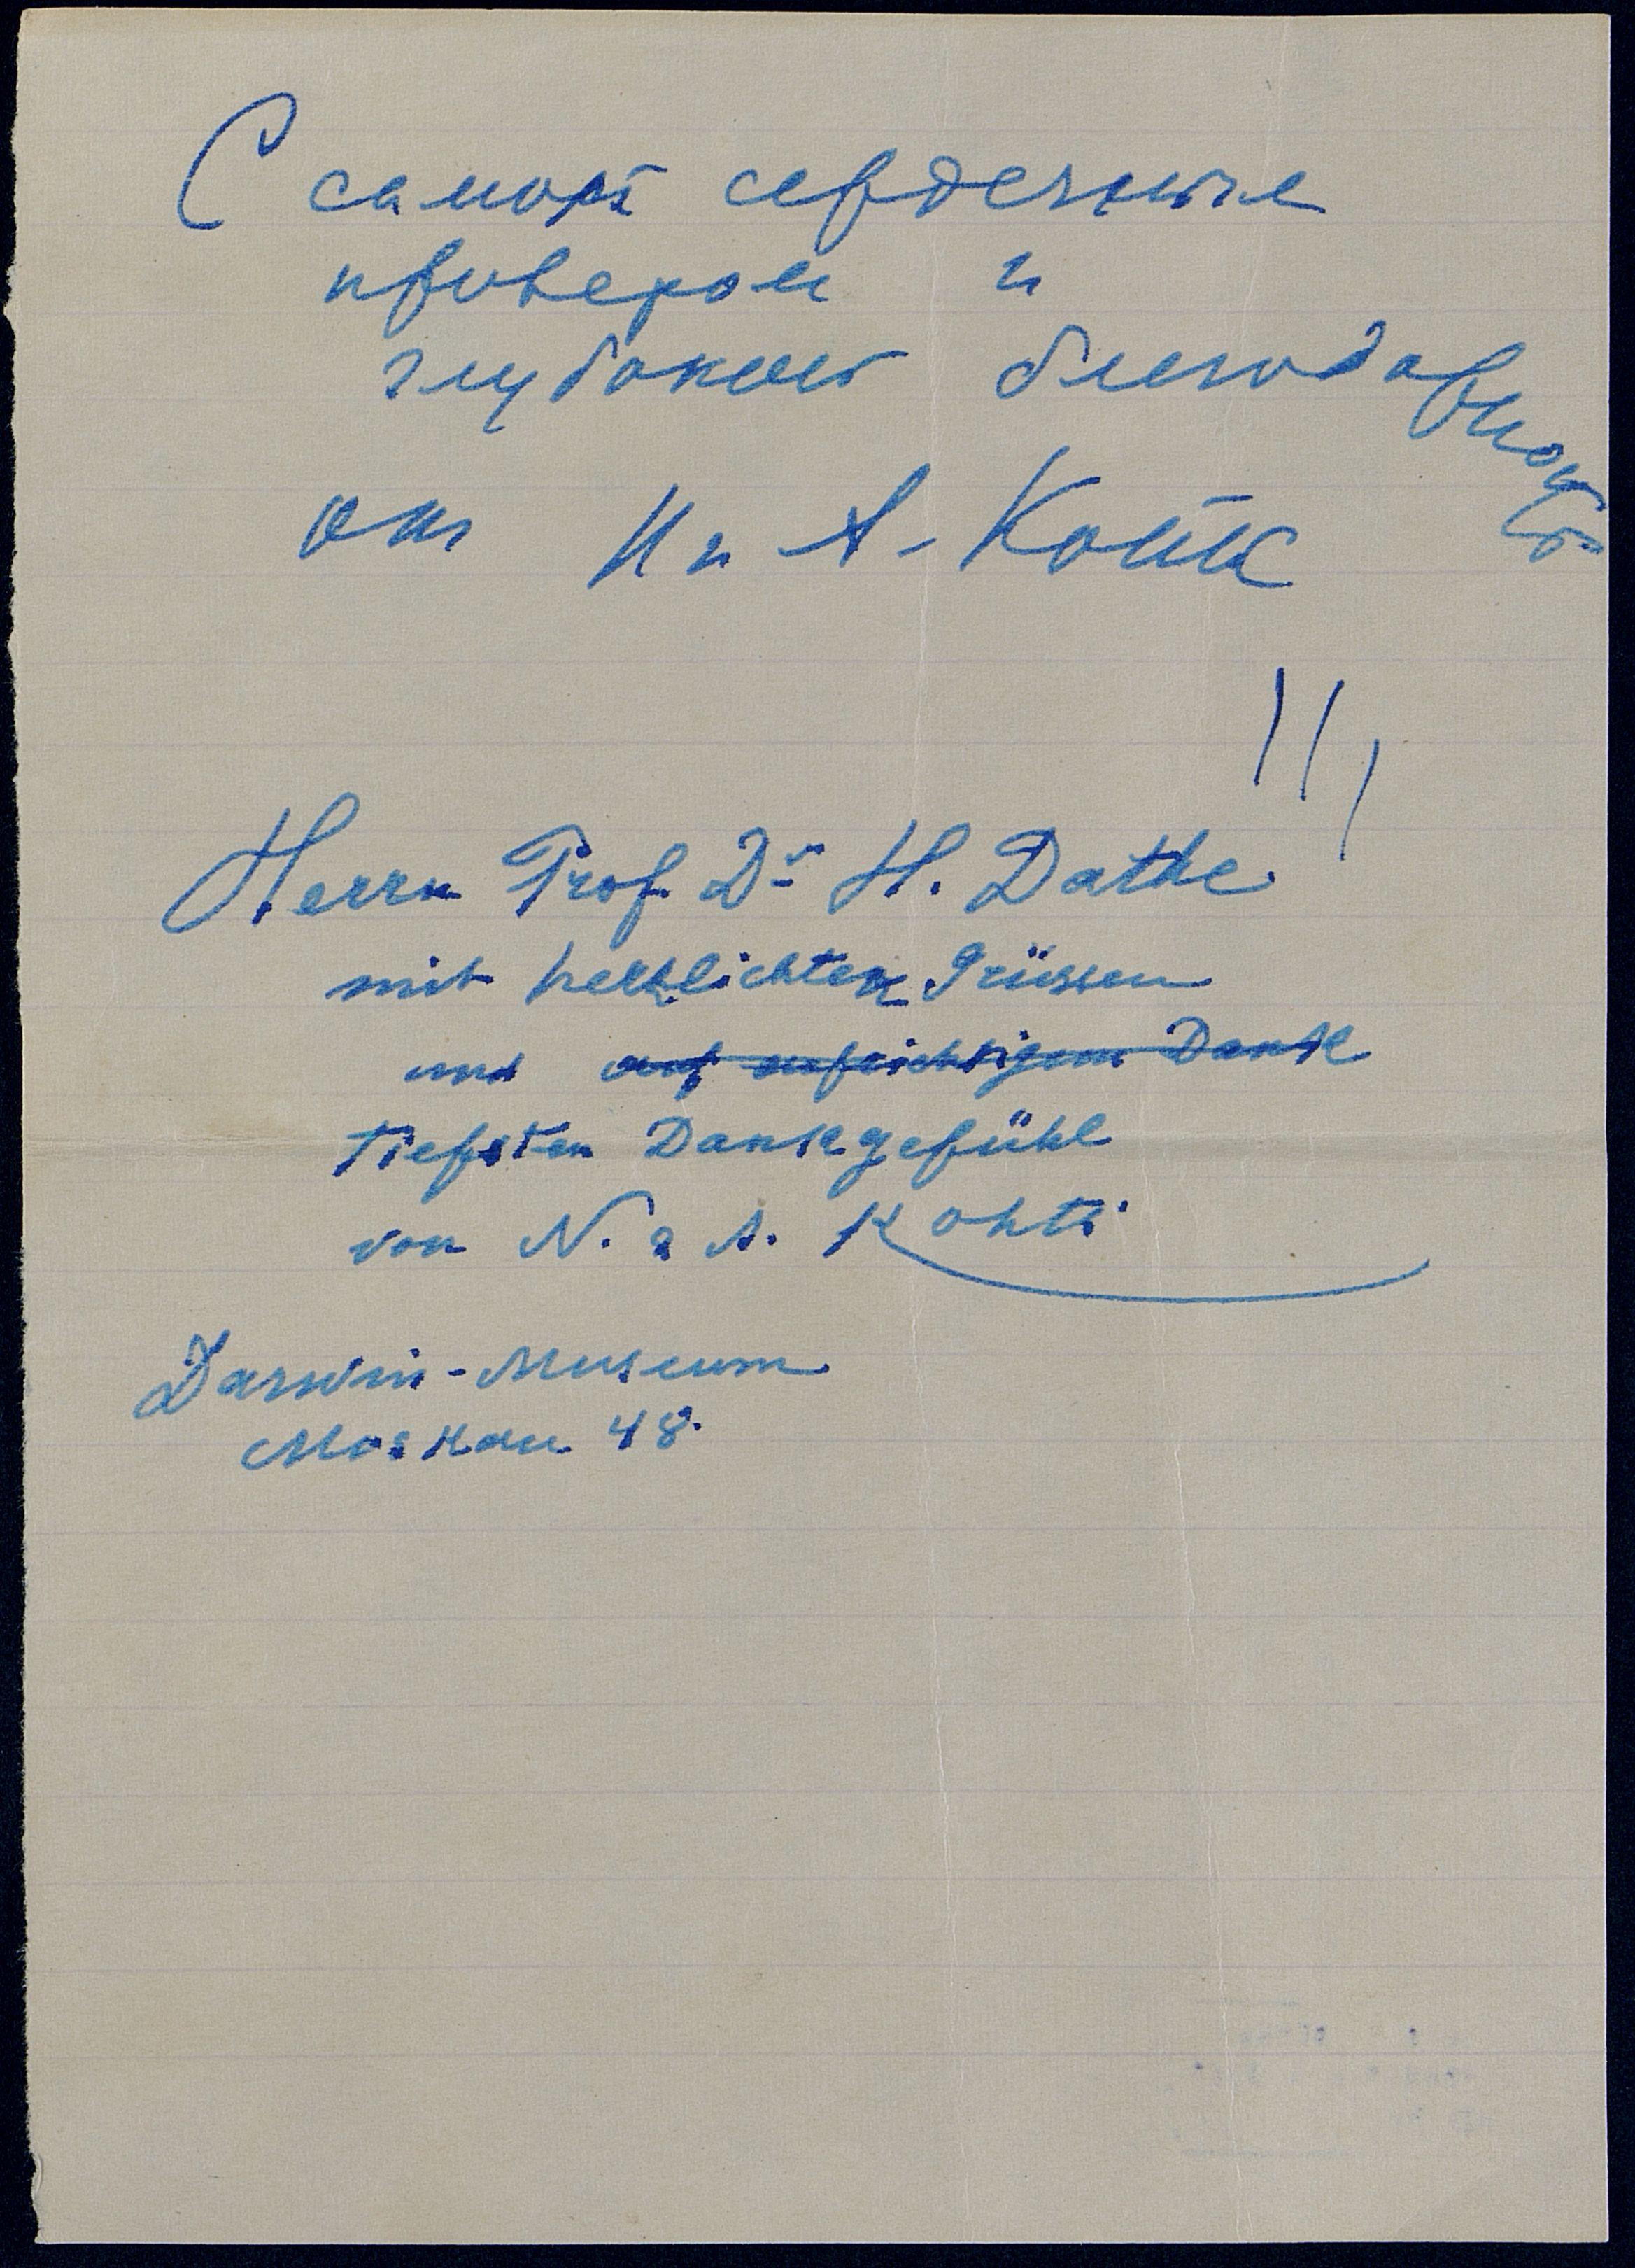 С самым сердечным
приветом и
глубокой благодарностью
от Н и А. Котс
Herrn Prof. Dr H. Dathe
mit herzlichten Grüssen
und auf aufrichtigem Danke
tiefsten Dankgefühl
von N. & A. Kohts
Darwin-Museum
Moskau 48.